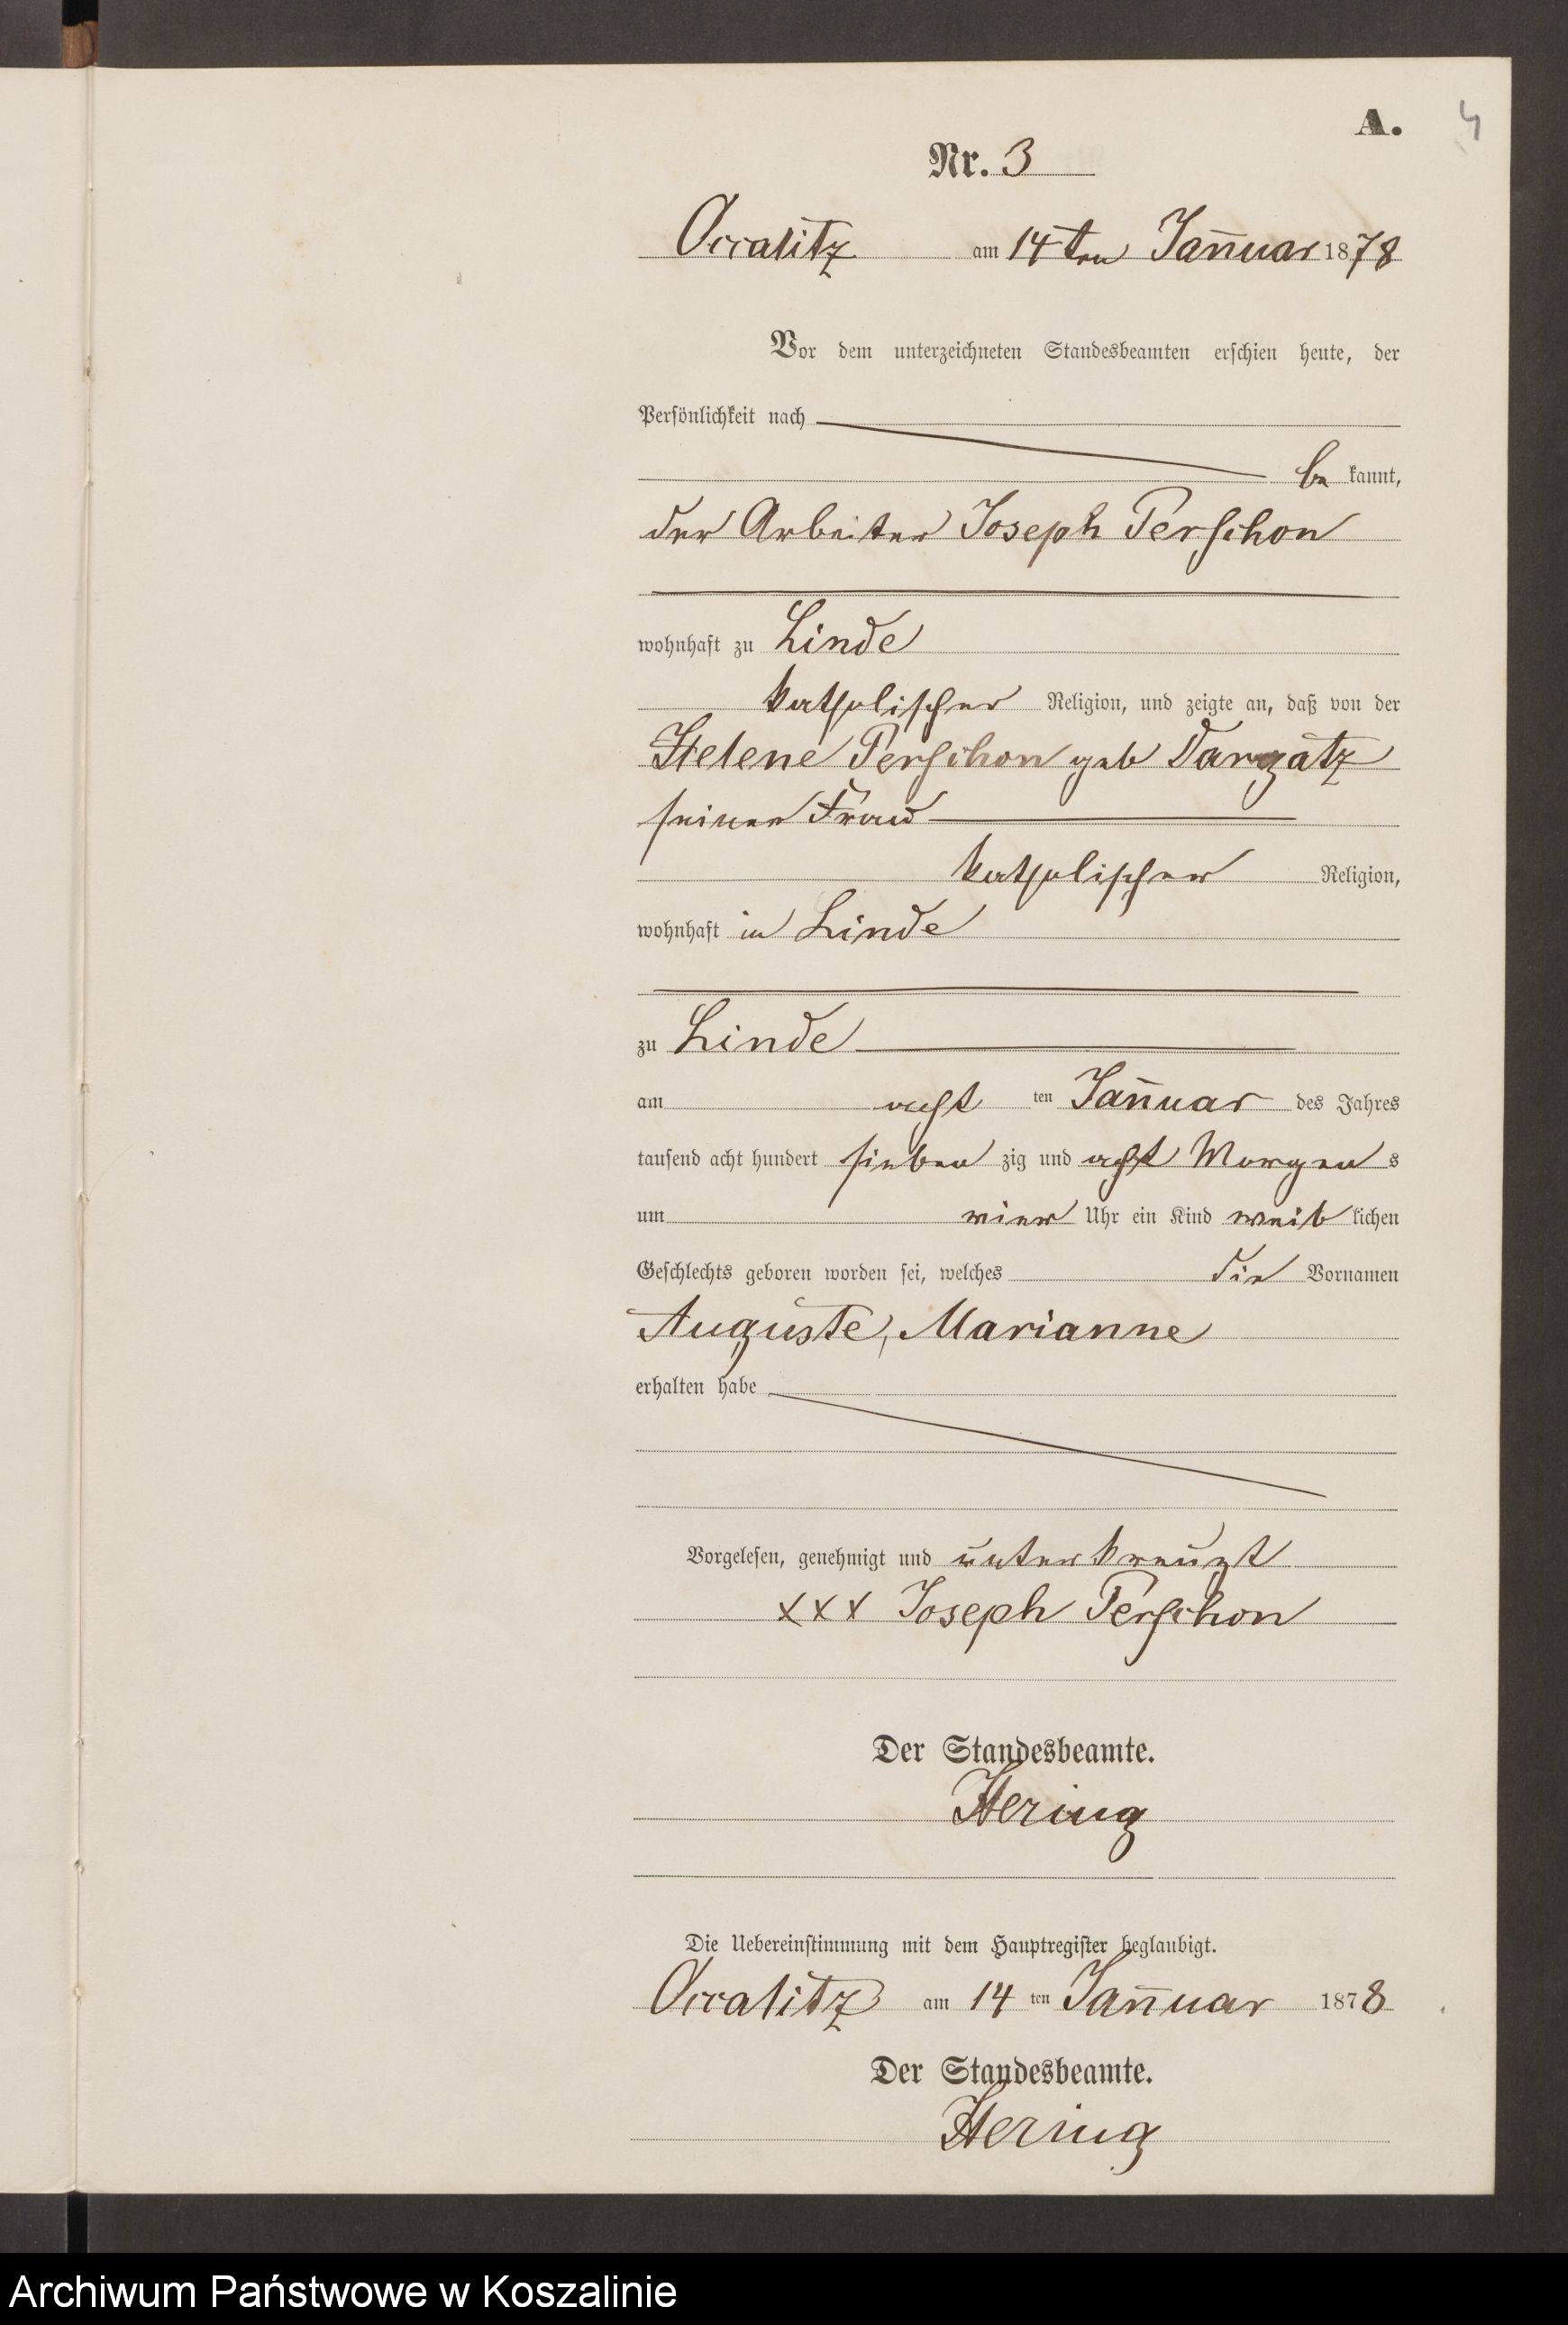 A. 4
Nr. 3
Occalitz am 14ten Januar 1878
Vor dem unterzeichneten Standesbeamten erschien heute, der
Persönlichkeit nach
be kannt,
der Arbeiter Joseph Perschon
wohnhaft zu Linde
katholischer Religion, und zeigte an, daß von der
Helene Perschon geb Dargatz
seiner Frau
katholischer Religion,
wohnhaft in Linde
zu Linde
am acht ten Januar des Jahres
tausend acht hundert sieben zig und acht Morgen s
um vier Uhr ein Kind weib lichen
Geschlechts geboren worden sei, welches die Vornamen
Auguste, Marianne
erhalten habe
Vorgelesen, genehmigt und unterkreuzt
XXX Joseph Perschon
Der Standesbeamte.
Hering
Die Uebereinstimmung mit dem Hauptregister beglaubigt.
Occalitz am 14 ten Januar 1878
Der Standesbeamte.
Hering
Archiwum Państwowe w Koszalinie